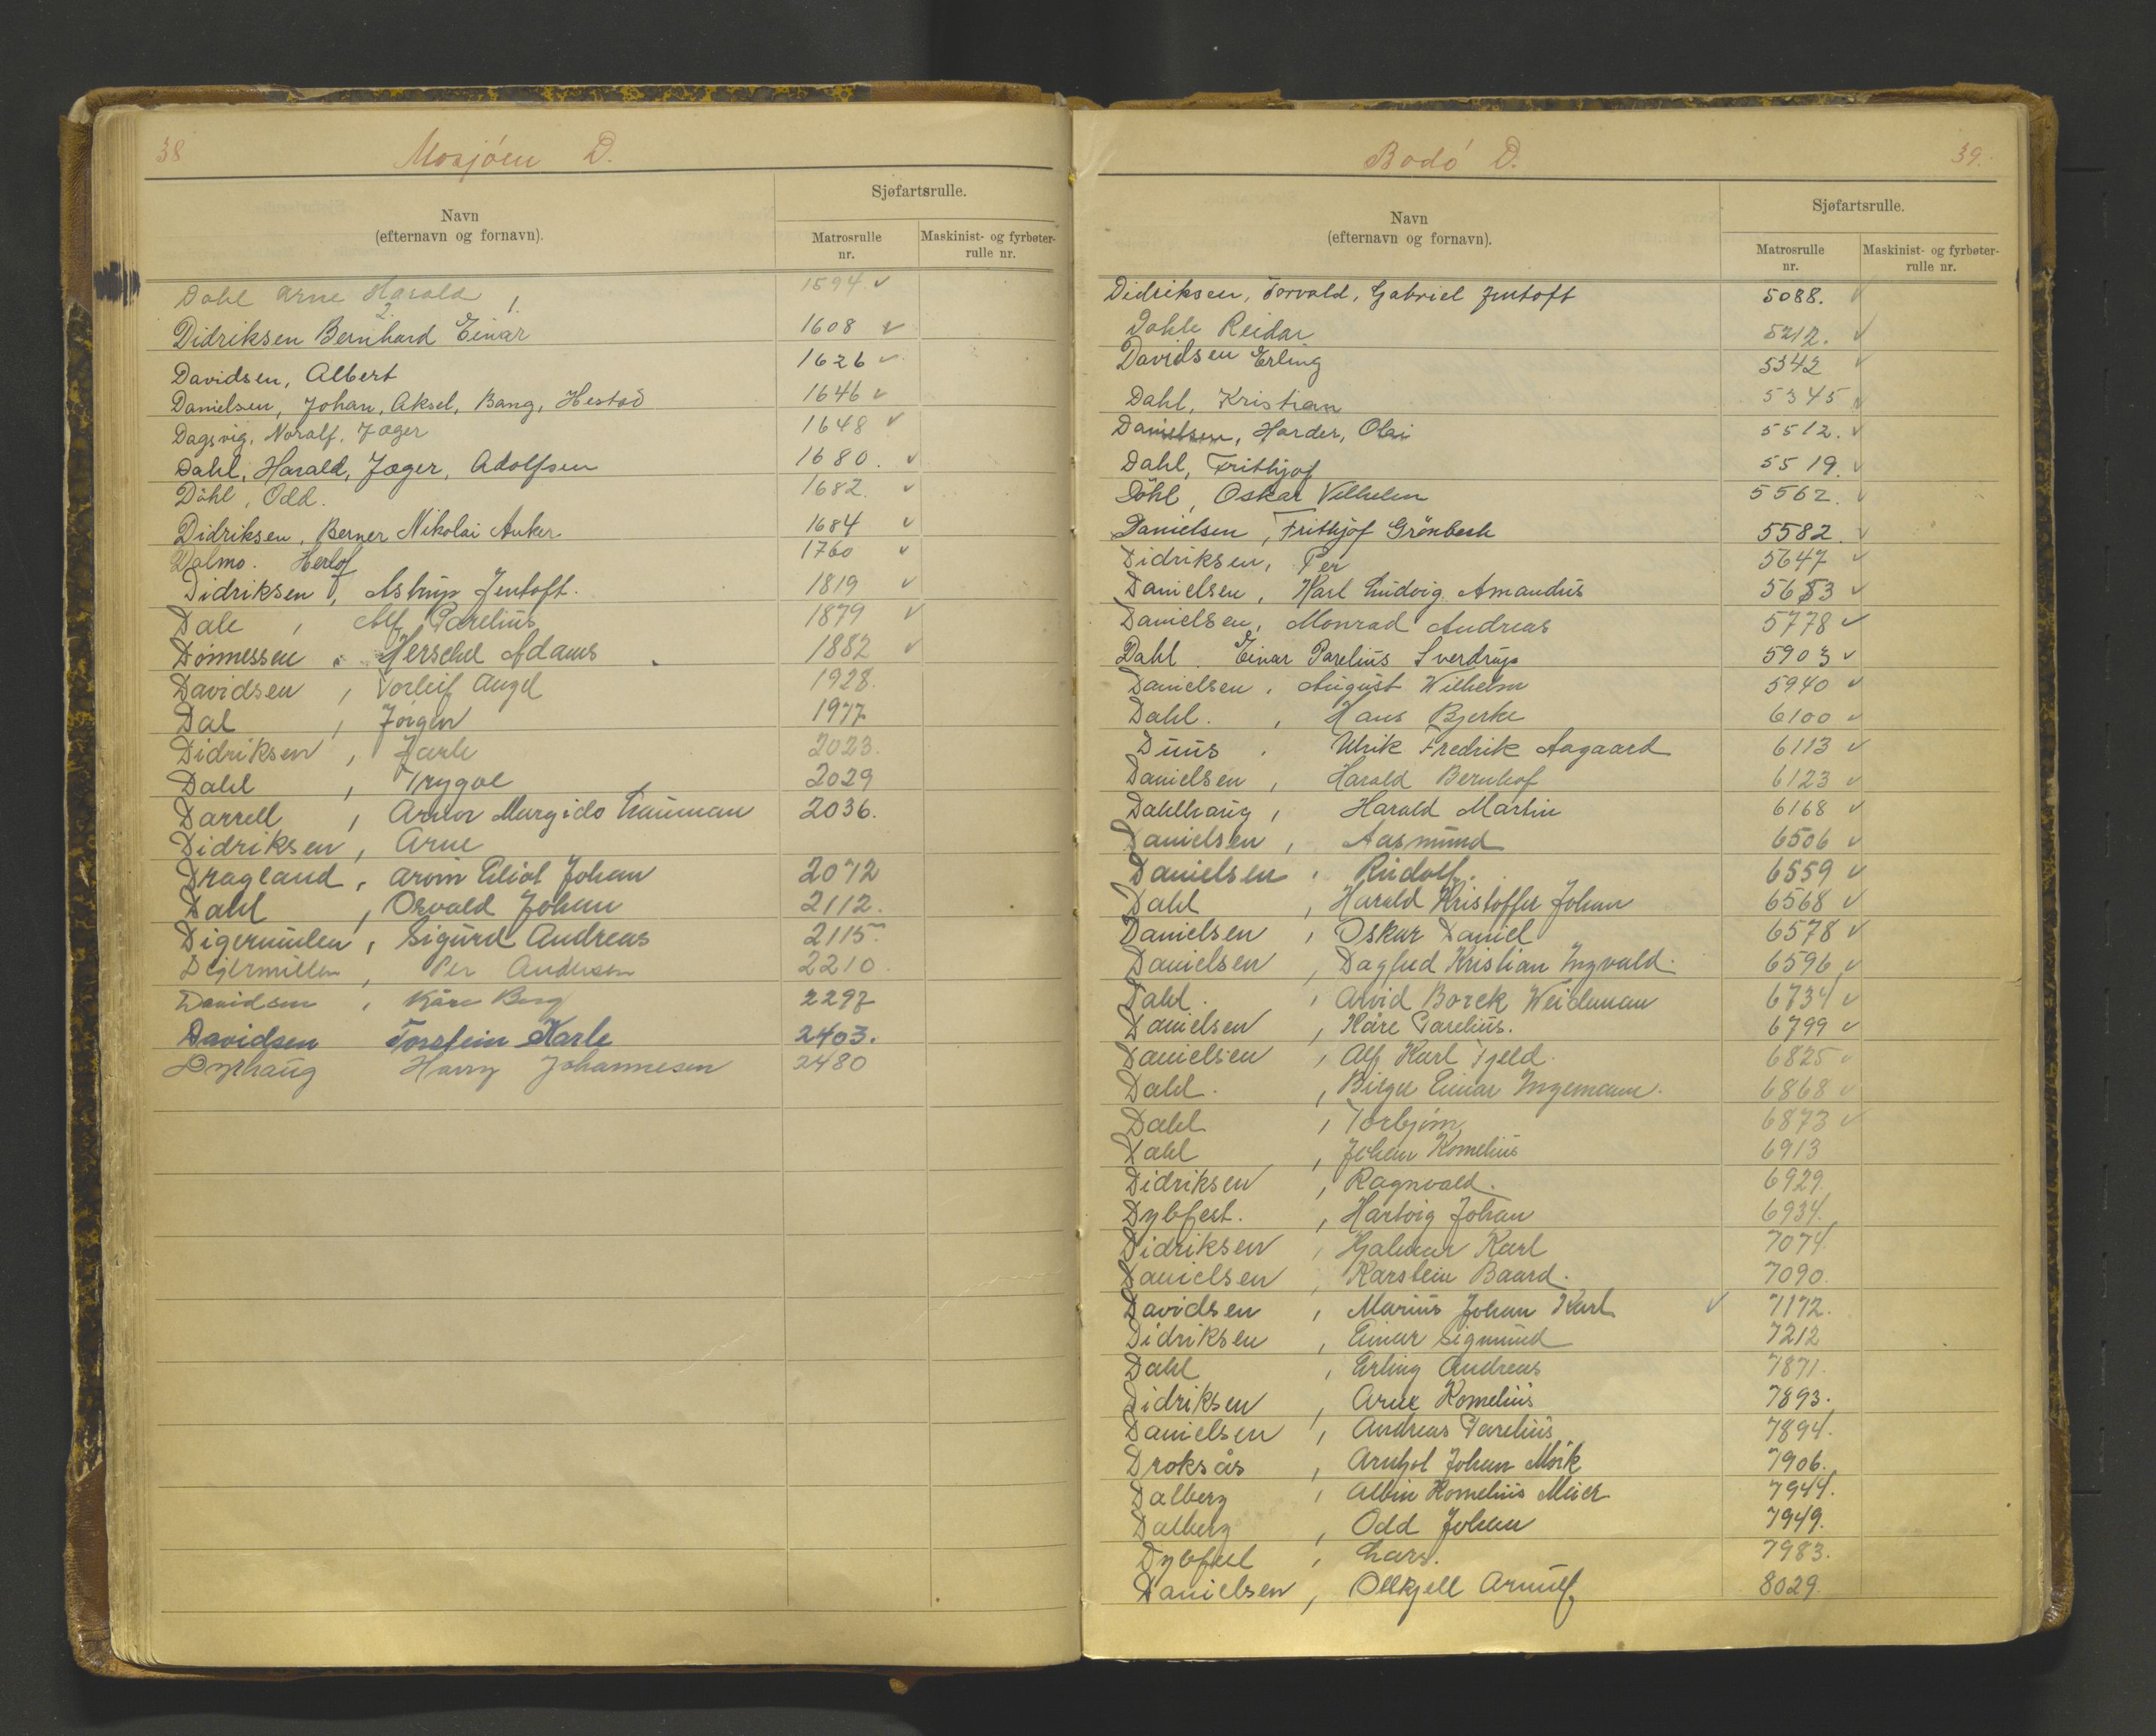 38
Mosjöen D.
Navn
(efternavn og fornavn).
Sjøfartsrulle.
Matrosrulle
nr.
Maskinist- og fyrbøter-
rulle nr.
Dahl Arne Harald 1594 ✓
Didriksen Bernhard Einar 1608 ✓
Davidsen, Albert 1626 ✓
Danielsen, Johan, Aksel, Bang, Hestad 1646 ✓
Dagsvig, Noralf. Jæger 1648 ✓
Dahl, Harald, Jæger, Adolfsen 1680. ✓
Döhl, Odd. 1682. ✓
Didriksen, Berner Nikolai Anker. 1684 ✓
Dalmo. Herlof 1760 ✓
Didriksen, Astrup Jentoft. 1819 ✓
Dale, Alf Parelius 1879 ✓
Dönnessen, Herschel Adams 1882 ✓
Davidsen, Torleif Angel 1928.
Dal, Jörgen 1977
Didriksen, Jarle 2023.
Dahl, Trygve 2029
Darrell, Arthor Murgido Lauman 2036.
Didriksen, Arne
Dragland, Arvin Eliot Johan 2072
Dahl, Osvald Johan 2112.
Digermulen, Sigurd Andreas 2115.
Digermullen, Per Andersen 2210.
Davidsen, Kåre Berg 2297
Davidsen Torstein Karle 2403.
Dyrhaug Harry Johannesen 2480
Bodö D.
39.
Navn
(efternavn og fornavn).
Sjøfartsrulle.
Matrosrulle
nr.
Maskinist- og fyrbøter-
rulle nr.
Didriksen, Torvald, Gabriel Jentoft 5088. ✓
Dahle Reidar 5212. ✓
Davidsen Erling 5342 ✓
Dahl, Kristian 5345 ✓
Danielsen, Harder, Olai 5512. ✓
Dahl, Frithjof 5519. ✓
Döhl, Oskar Vilhelm 5562. ✓
Danielsen, Frithjof Grönbech 5582. ✓
Didriksen, Per 5647 ✓
Danielsen, Karl Ludvig Amandus 5653 ✓
Danielsen, Monrad Andreas 5778 ✓
Dahl. Einar Parelius Sverdrup 5903 ✓
Danielsen, August Wilhelm 5940 ✓
Dahl., Hans Bjerke 6100 ✓
Duus. Ulrik Fredrik Aagaard 6113 ✓
Danielsen, Harald Bernhof 6123 ✓
Dahlhaug, Harald Martin 6168 ✓
Danielsen, Aasmund 6506 ✓
Danielsen, Rudolf. 6559 ✓
Dahl, Harald Kristoffer Johan 6568 ✓
Danielsen, Oskar Daniel 6578 ✓
Danielsen, Dagfred Kristian Ingvald. 6596 ✓
Dahl., Arvid Borck Weideman 6734 ✓
Danielsen, Kåre Parelius. 6799 ✓
Danielsen, Alf Karl Fjeld. 6825 ✓
Dahl., Birger Einar Ingemann. 6868 ✓
Dahl, Torbjörn 6873 ✓
Dahl, Johan Kornelius 6913
Didriksen, Ragnvald. 6929.
Dybfest., Hartvig Johan 6934.
Didriksen, Hjalmar Karl 7074.
Danielsen, Karstein Baard. 7090.
Davidsen, Marius Johan Karl ✓ 7172.
Didriksen, Einar Sigmund 7212
Dahl, Erling Andreas 7871.
Didriksen, Arne Kornelius 7893.
Danielsen, Andreas Parelius 7894.
Droksås, Arnhol Johan Mörk 7906.
Dalberg, Albin Kornelius Meier 7944.
Dalberg, Odd Johan 7949.
Dybfest, Lars. 7983.
Danielsen, Ollkjell Arnulf 8029.